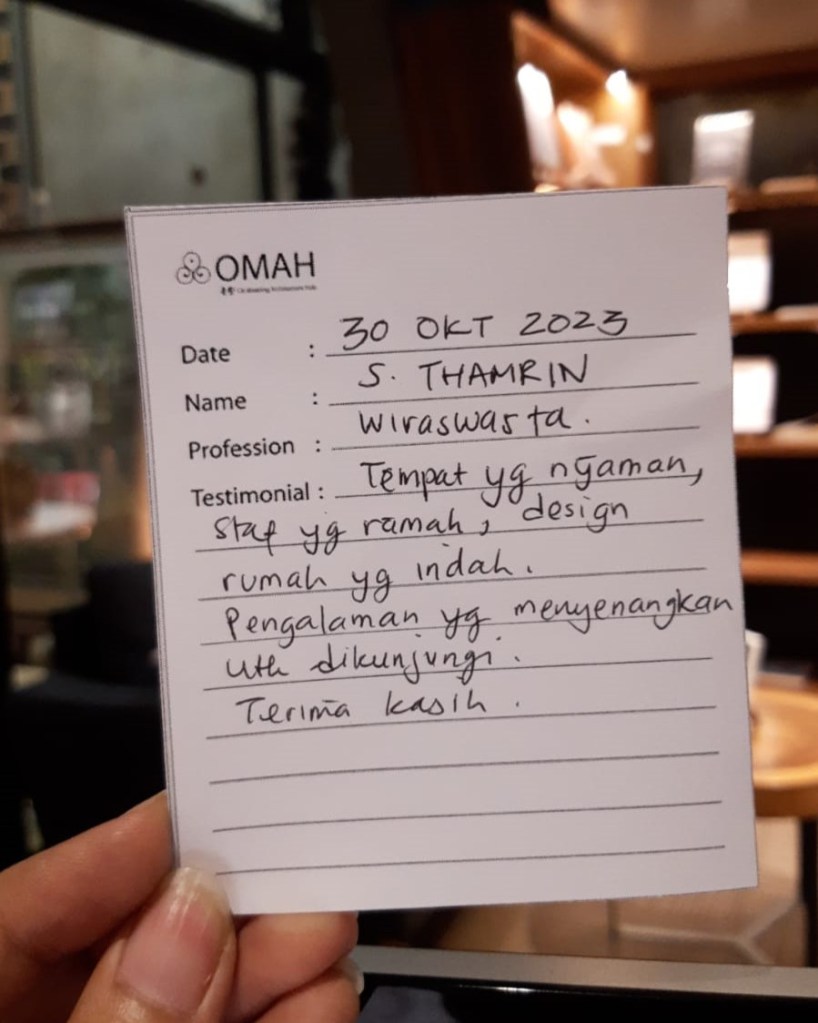 OMAH
Date : 30 OKT 2023
Name : S. THAMRIN
Profession : Wiraswasta.
Testimonial : Tempat yg nyaman,
Staf yg ramah, design
rumah yg indah.
Pengalaman yg menyenangkan
utk dikunjungi.
Terima kasih.